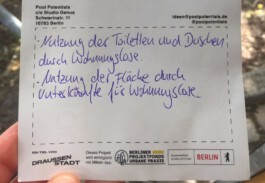 Pool Potentials
c/o Studio Genua
10783 Berlin
ideen@poolpotentials.de
@poolpotentials
- Nutzung der Toiletten und Duschen
durch Wohnungslose.
- Nutzung der Fläche durch
Unterkünfte für Wohnungslose.
DRAUSSEN
STADT
Dieses Projekt
wird ermöglicht
BERLINER
PROJEKTFONDS
URBANE PRAXIS
BERLIN